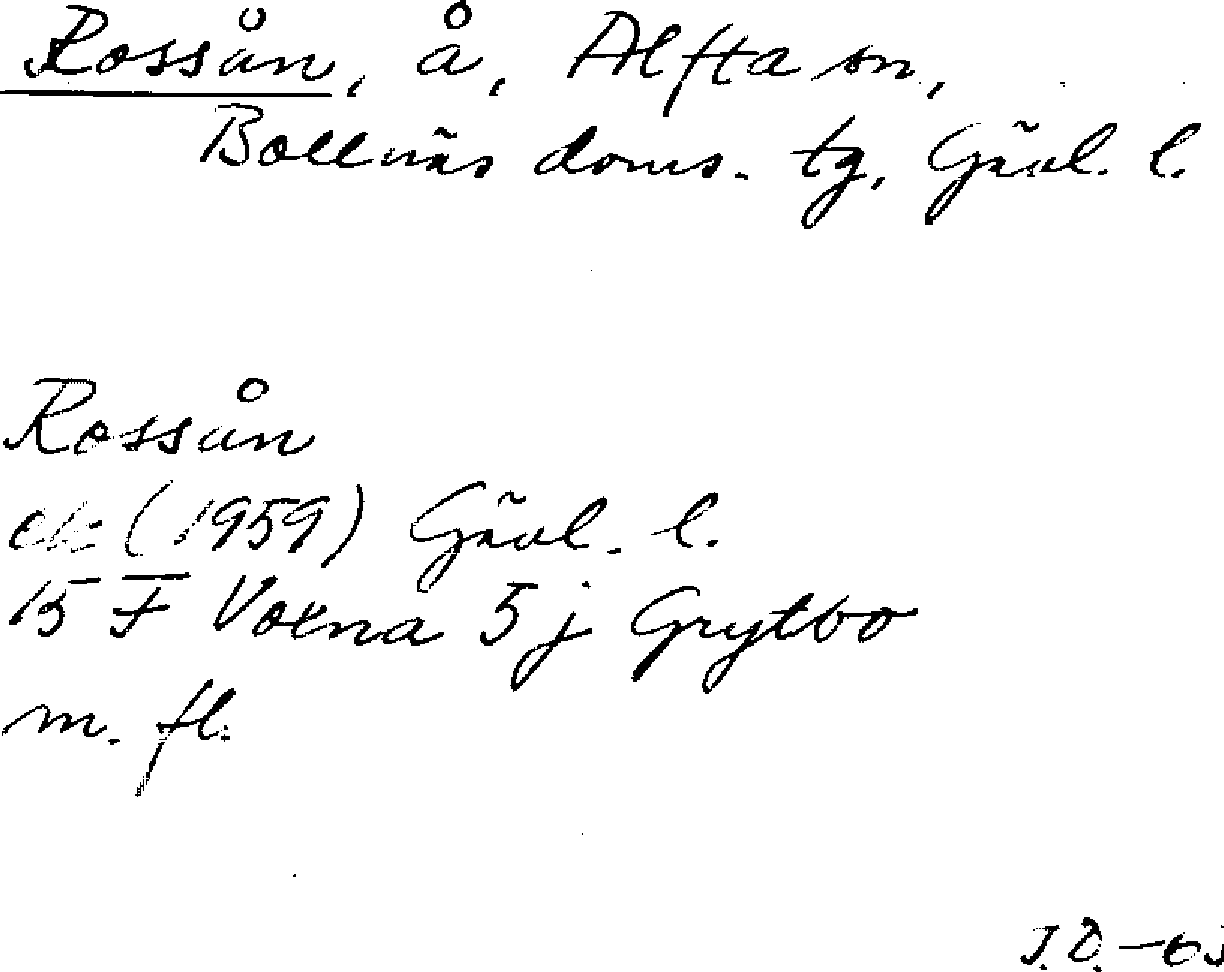 Rossån, å, Alfta sn,
Bollnäs doms. tg, Gävl. l.
Rossån
ek (1959) Gävl. l.
15 F Voxna 5 j Grytbo
m. fl.
J.Ö.